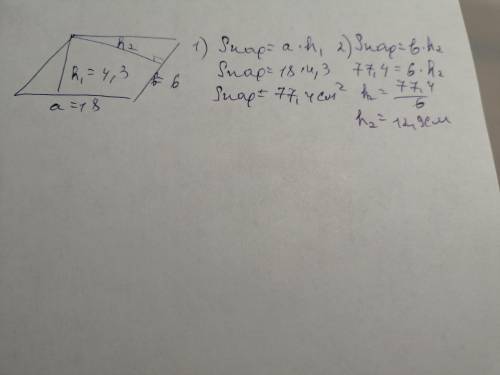 h₂
h₁ = 4,3
b 6
a = 18
1) Sпар = a · h₁
Sпар = 18 · 4,3
Sпар = 77,4 см²
2) Sпар = b · h₂
77,4 = 6 · h₂
h₂ = 77,4 / 6
h₂ = 12,9 см